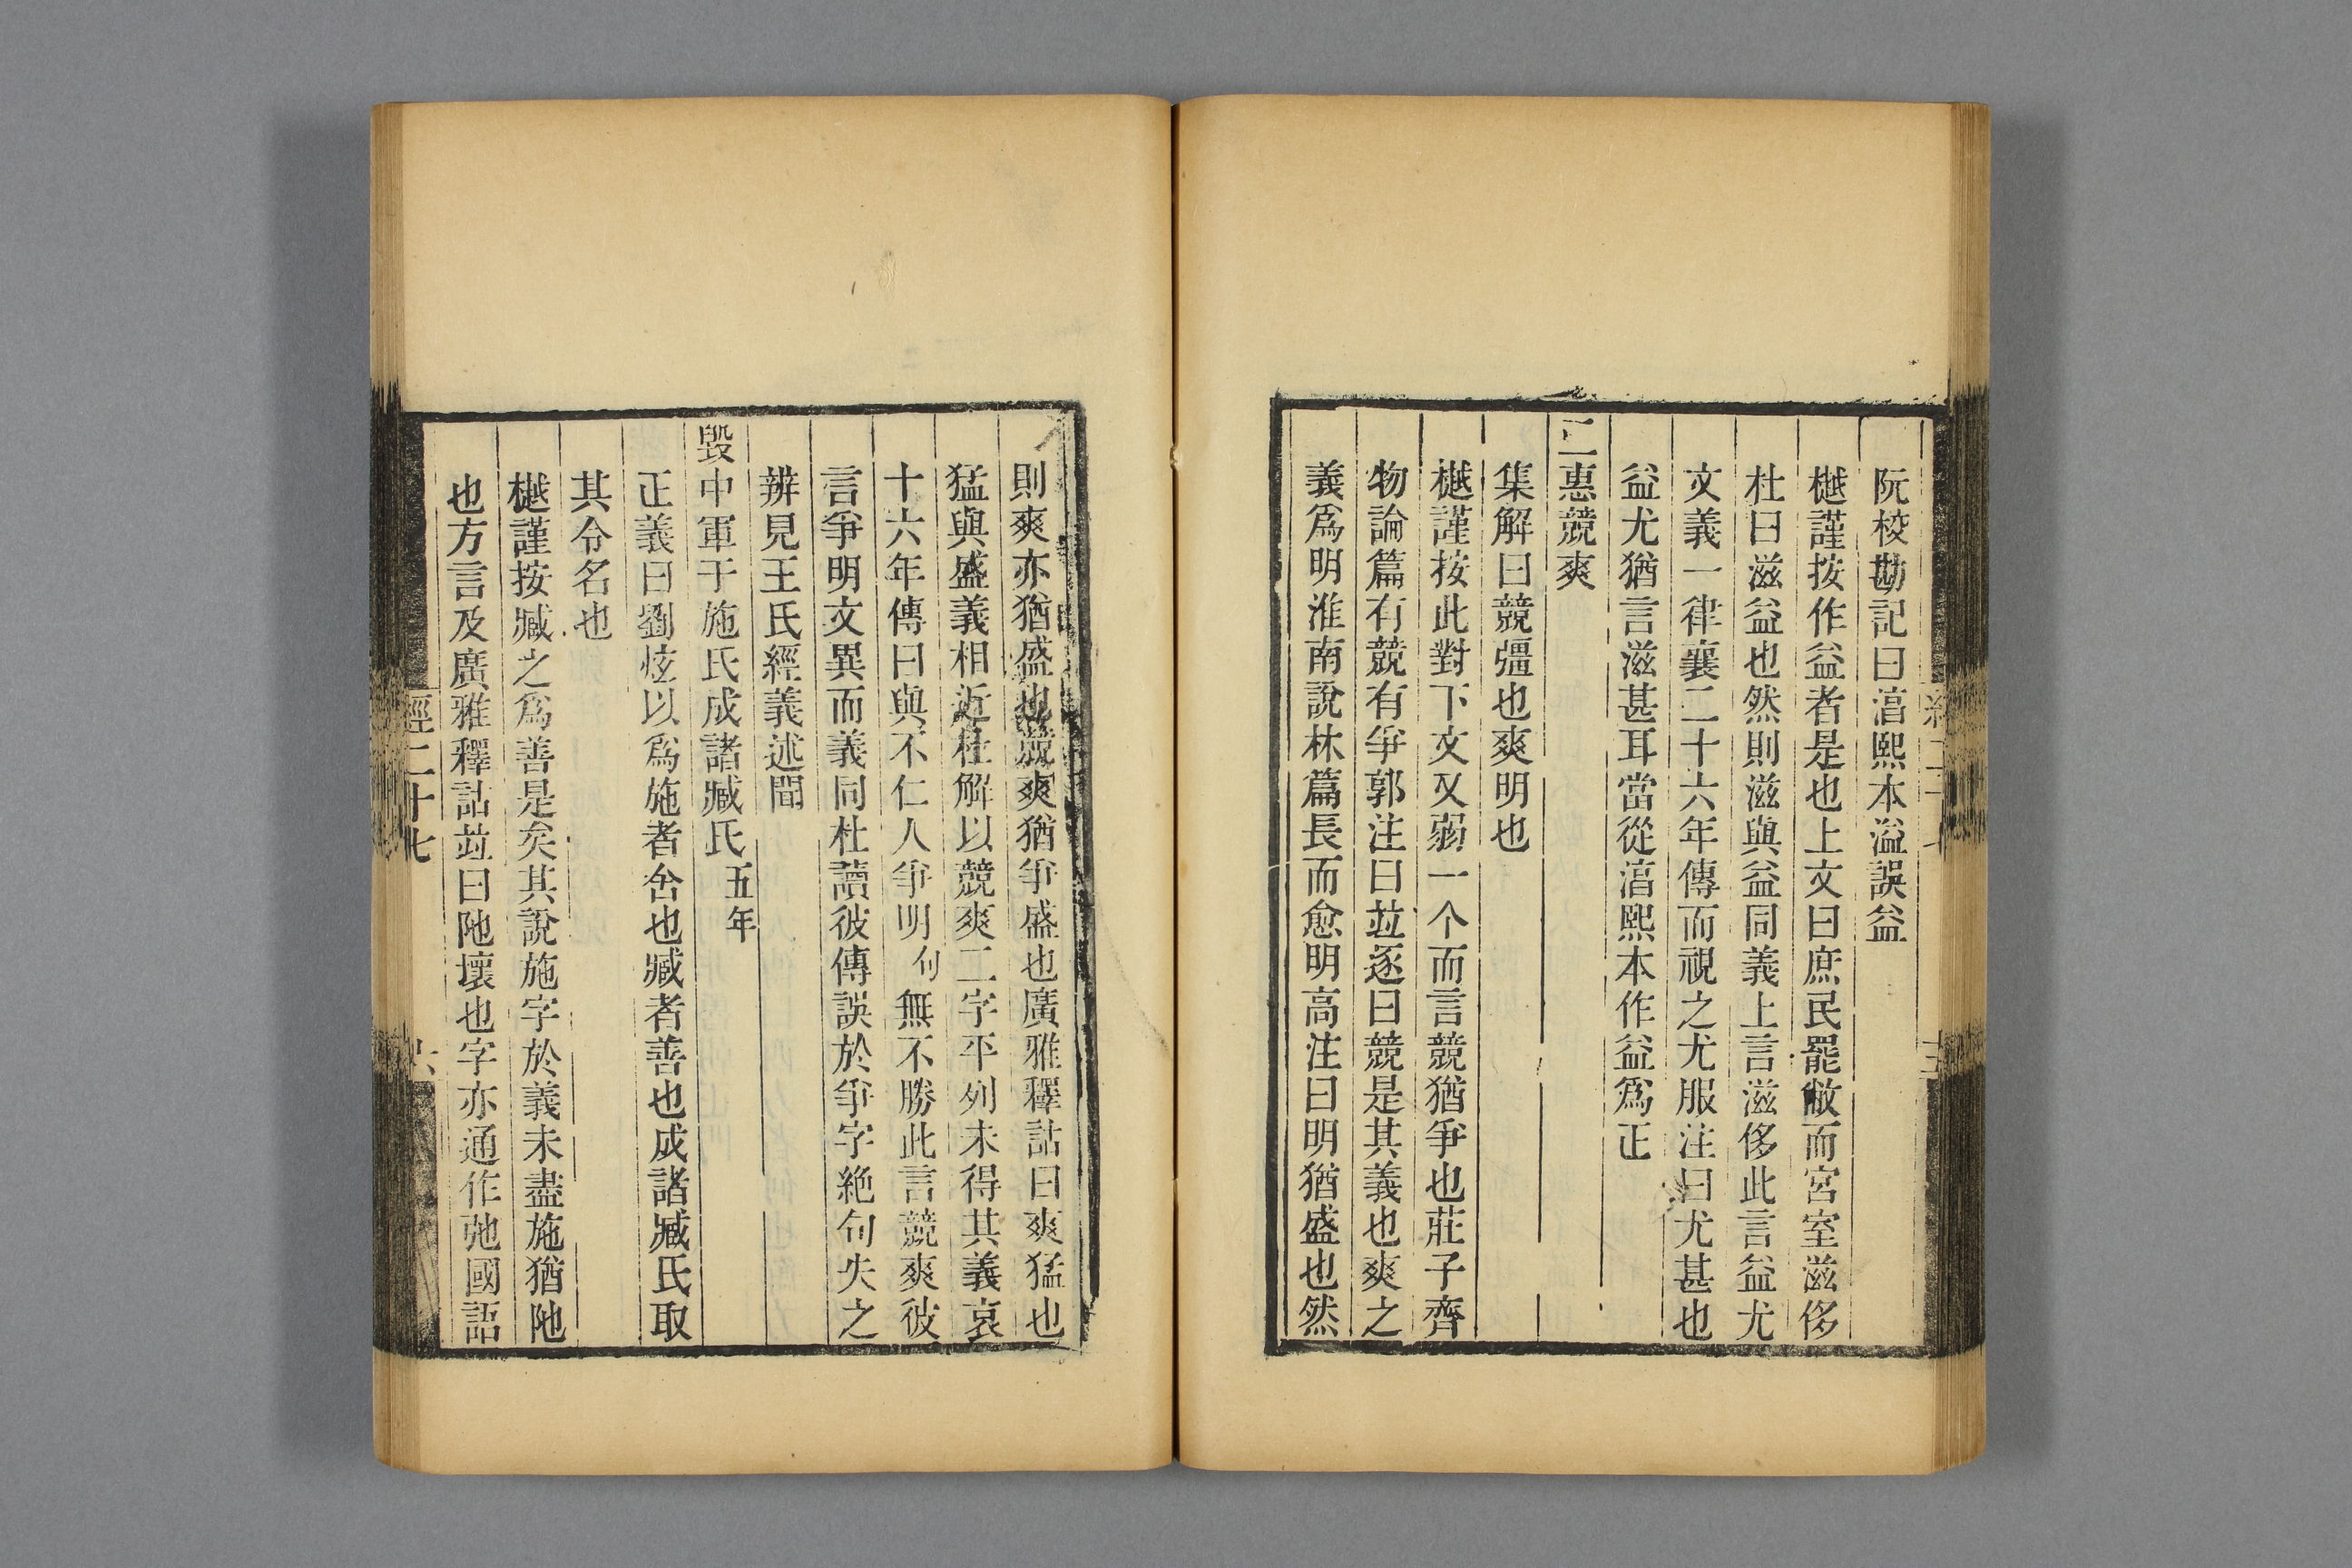 阮校勘記曰湻熙本溢誤益
樾謹按作益者是也上文曰庶民罷敝而宮室滋侈
杜曰滋益也然則滋與益同義上言滋侈此言益尤
文義一律襄二十六年傳而視之尤服注曰尤甚也
益尤猶言滋甚耳當從湻熙本作益爲正
二惠競爽
集解曰競彊也爽明也
樾謹按此對下文又弱一个而言競猶爭也莊子齊
物論篇有競有爭郭注曰竝逐曰競是其義也爽之
義爲明淮南說林篇長而愈明高注曰明猶盛也然
則爽亦猶盛也競爽猶爭盛也廣雅釋詁曰爽猛也
猛與盛義相近杜解以競爽二字平列未得其義哀
十六年傳曰與不仁人爭明句無不勝此言競爽彼
言爭明文異而義同杜讀彼傳誤於爭字絶句失之
辨見王氏經義述聞
毀中軍于施氏成諸臧氏五年
正義曰劉炫以爲施者舍也臧者善也成諸臧氏取
其令名也
樾謹按臧之爲善是矣其說施字於義未盡施猶阤
也方言及廣雅釋詁竝曰阤壞也字亦通作弛國語
經二十七